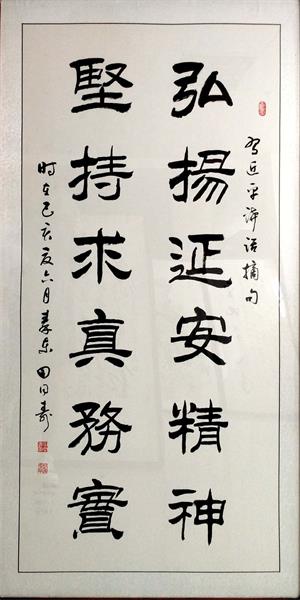 习近平讲话摘句
弘揚延安精神
堅持求真務實
时在己亥夏六月田同寿